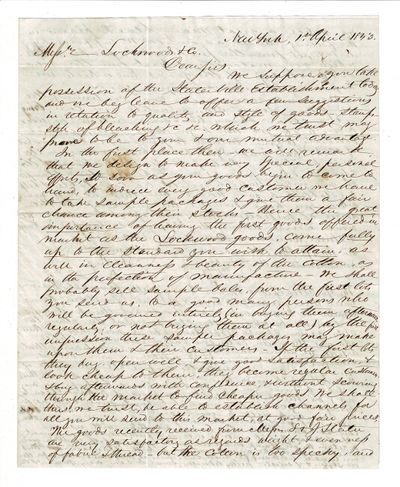 New York, 1st April 1843.
Messrs Lockwood & Co.
Dear Sirs
We suppose you take
possession of the Slater Ville Establishment today
and we beg leave to offer a few suggestions
in relation to quality and style of goods, stamps
style of bleaching &c &c which we trust may
prove to be to your & our mutual advantage
In the first place then we will remark
that we design to make very special personal
efforts, as soon as your goods begin to come to
hand, to induce every good customer we have
to take sample packages & give them a fair
chance among their stocks — Hence the great
importance of having the first goods offered in
market as the Lockwood goods, come fully
up to the standard you wish to attain, as
well in clearness & beauty of the cotton, as
in the perfection of manufacture. We shall
probably sell sample bales, from the first lots
you send us, to a good many persons who
will be governed entirely (in buying them afterwards
regularly, or not buying them at all) by the
impression these sample packages may make
upon them & their customers — If the first lots
they buy open well & give good satisfaction &
look cheap to them, they become regular customers
& buy afterwards with confidence & without scouring
through the market to find cheaper goods. We shall
thus, we trust, be able to establish channels for
all you will send to this market, at good fair prices
The goods recently received from Messrs S & J Slater
are very satisfactory as regards weight & evenness
of fabric & thread — but the cotton is too specky, and